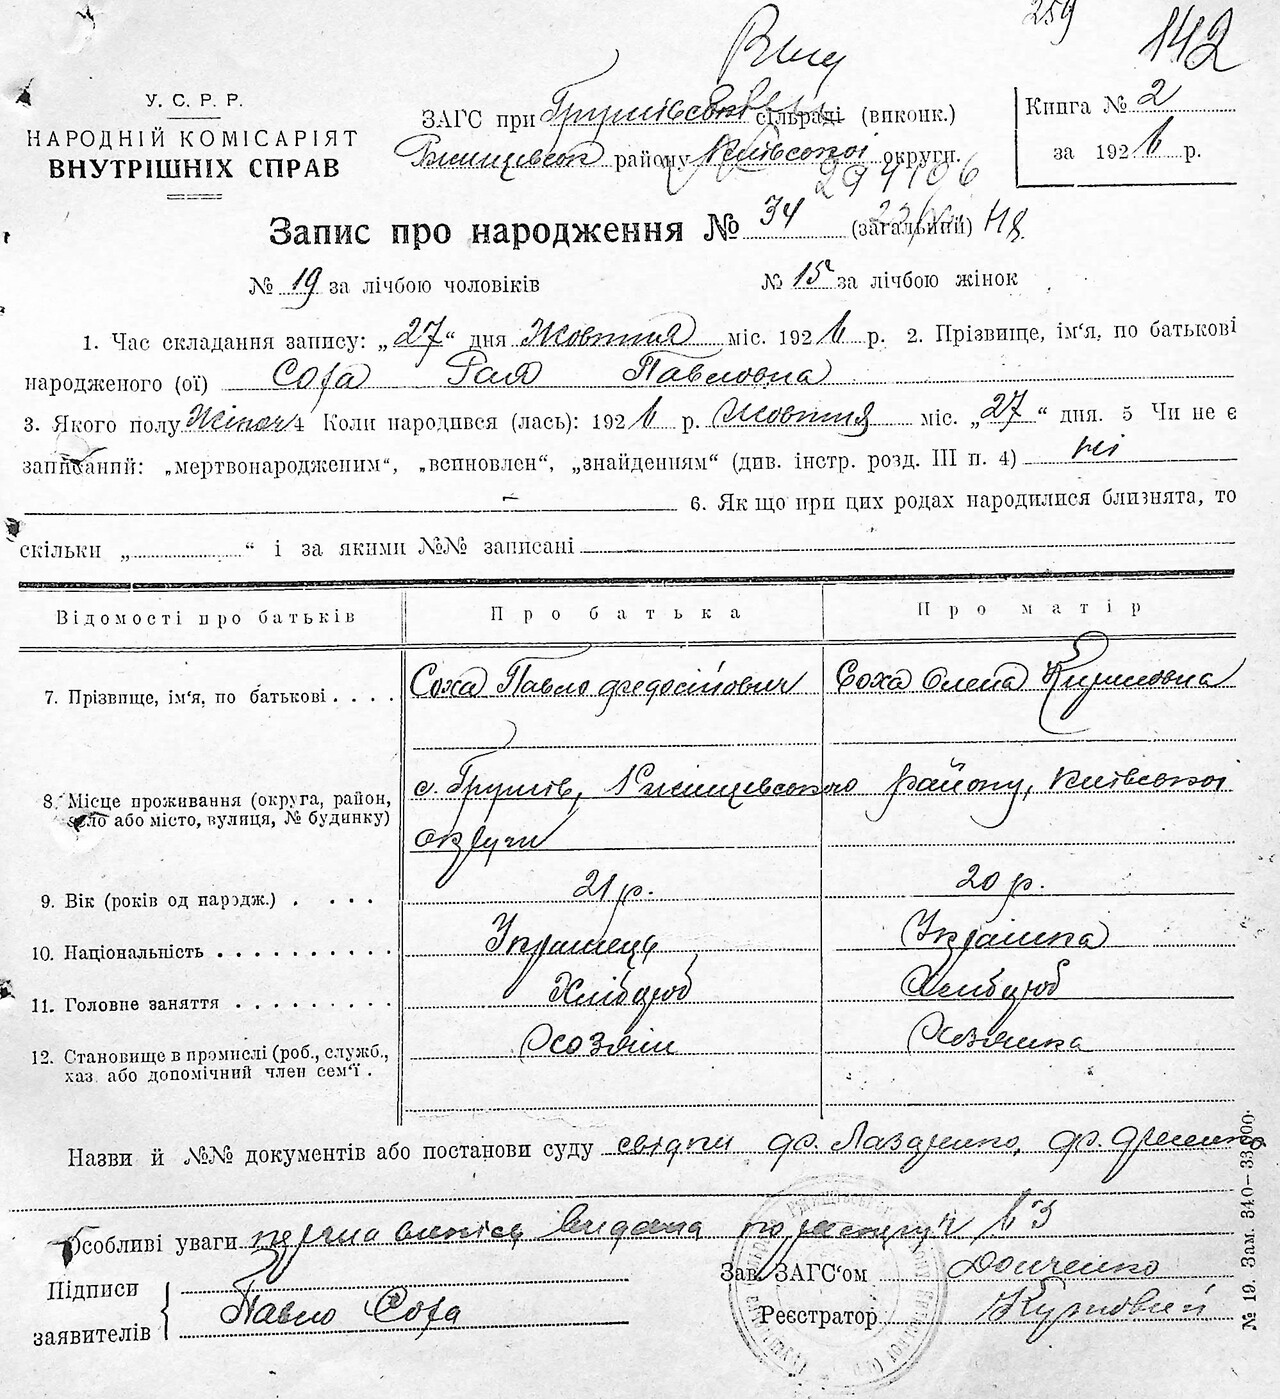 259
142
У. С. Р. Р.
НАРОДНІЙ КОМІСАРІЯТ
ВНУТРІШНІХ СПРАВ
ЗАГС при Грушівській сільраді (виконк.)
району Київської округи.
Книга № 2
за 1926 р.
Запис про народження № 34 (загальний)
№ 19 за лічбою чоловіків № 15 за лічбою жінок
1. Час складання запису: „27“ дня Жовтня міс. 1926 р. 2. Прізвище, ім‘я, по батькові
народженого (ої) Соха Рая Павловна
3. Якого полу Жіноч 4 Коли народився (лась): 1926 р. Жовтня міс. „27“ дня. 5 Чи не є
записаний: „мертвонародженим“, „всиновлен“, „знайденням“ (див. інстр. розд. III п. 4) ні
— 6. Як що при цих родах народилися близнята, то
скільки „ “ і за якими №№ записані
Відомості про батьків Про батька Про матір
7. Прізвище, ім‘я, по батькові . . . . Соха Павло Федосійович Соха Олена Кириловна
8. Місце проживання (округа, район, село або місто, вулиця, № будинку) с. Грушів, Ржищевського району, Київської
округи
9. Вік (років од народж.) . . . . 21 р. 20 р.
10. Національність . . . . . . . . . . Українець Українка
11. Головне заняття . . . . . . . . . Хлібороб Хлібороб
12. Становище в промислі (роб., служб., хаз. або допомічний член сем‘ї . Хозяїн Хозяйка
Назви й №№ документів або постанови суду свідки Ф. Лазаренко, Ф.
Особливі уваги перша випись видана по реєстру № 63
Підписи
заявителів
Павло Соха
Зав. ЗАГС‘ом Донченко
Реєстратор
№ 19. Зам. 340—33.000.